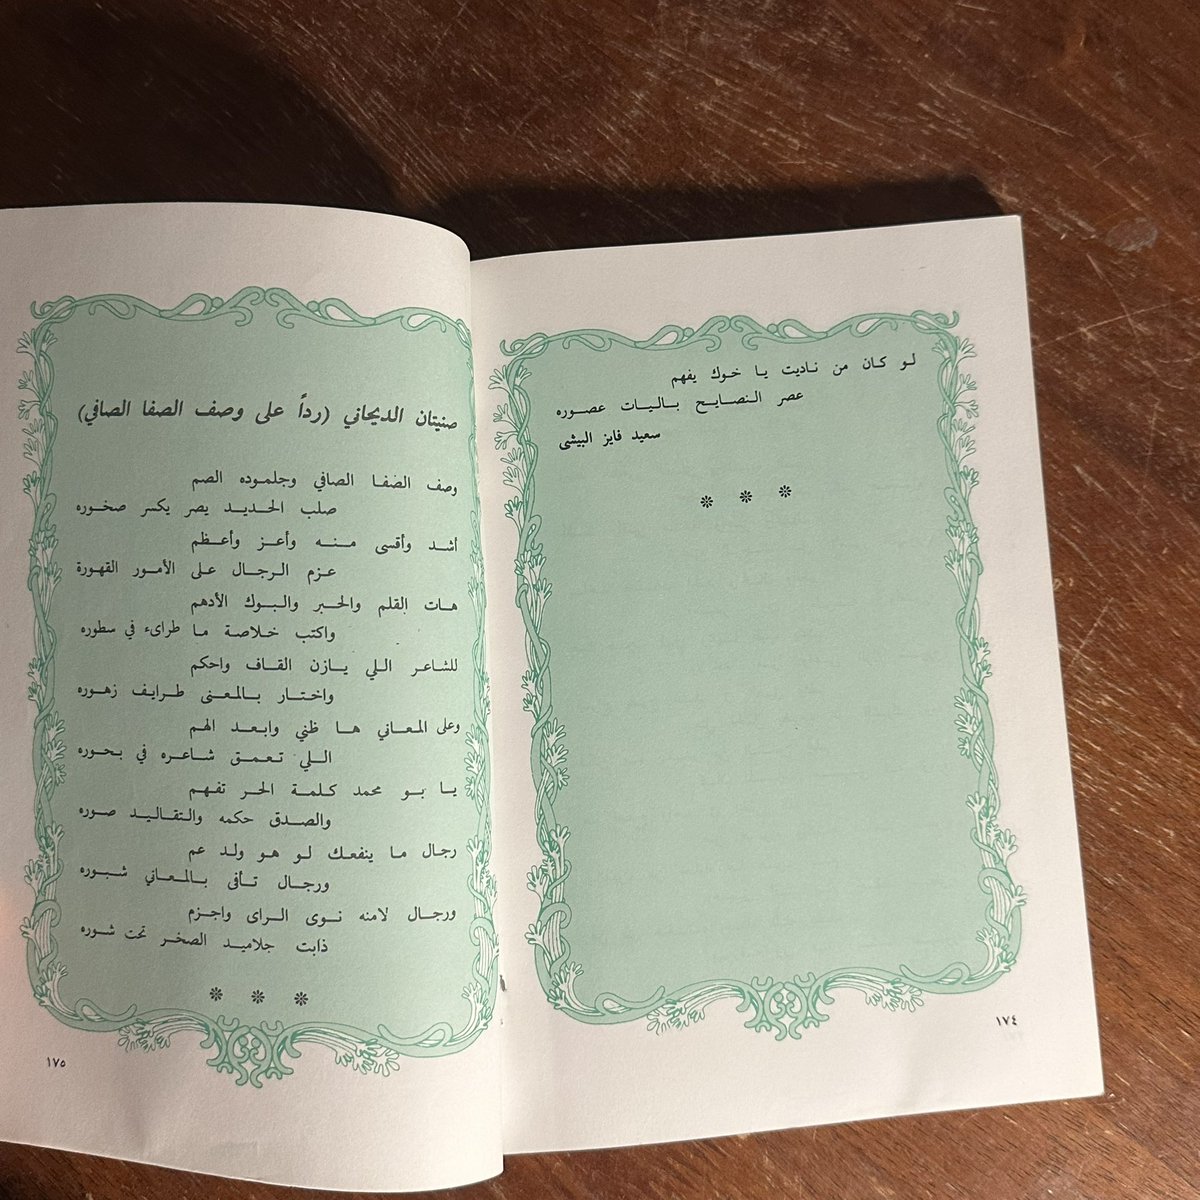 لو كان من ناديت يا خوك يفهم
عصر النصايح باليات عصوره
سعيد فايز البيشى
١٧٤
صنيتان الديحاني (رداً على وصف الصفا الصافي)
وصف الضفا الصافي وجلموده الصم
صلب الحديد يصر يكسر صخوره
أشد وأقسى منه وأعز وأعظم
عزم الرجال على الأمور القهورة
هات القلم والحبر والبوك الأدهم
واكتب خلاصة ما طراىء في سطوره
للشاعر اللي يازن القاف واحكم
واختار بالمعنى طرايف زهوره
وعلى المعاني ها ظني وابعد الهم
اللي تعمق شاعره في بحوره
يا بو محمد كلمة الحر تفهم
والصدق حكمه والتقاليد صوره
رجال ما ينفعك لو هو ولد عم
ورجال تأفى بالمعاني شبوره
ورجال لامنه نوى الراى واجزم
ذابت جلاميد الصخر تحت شوره
١٧٥